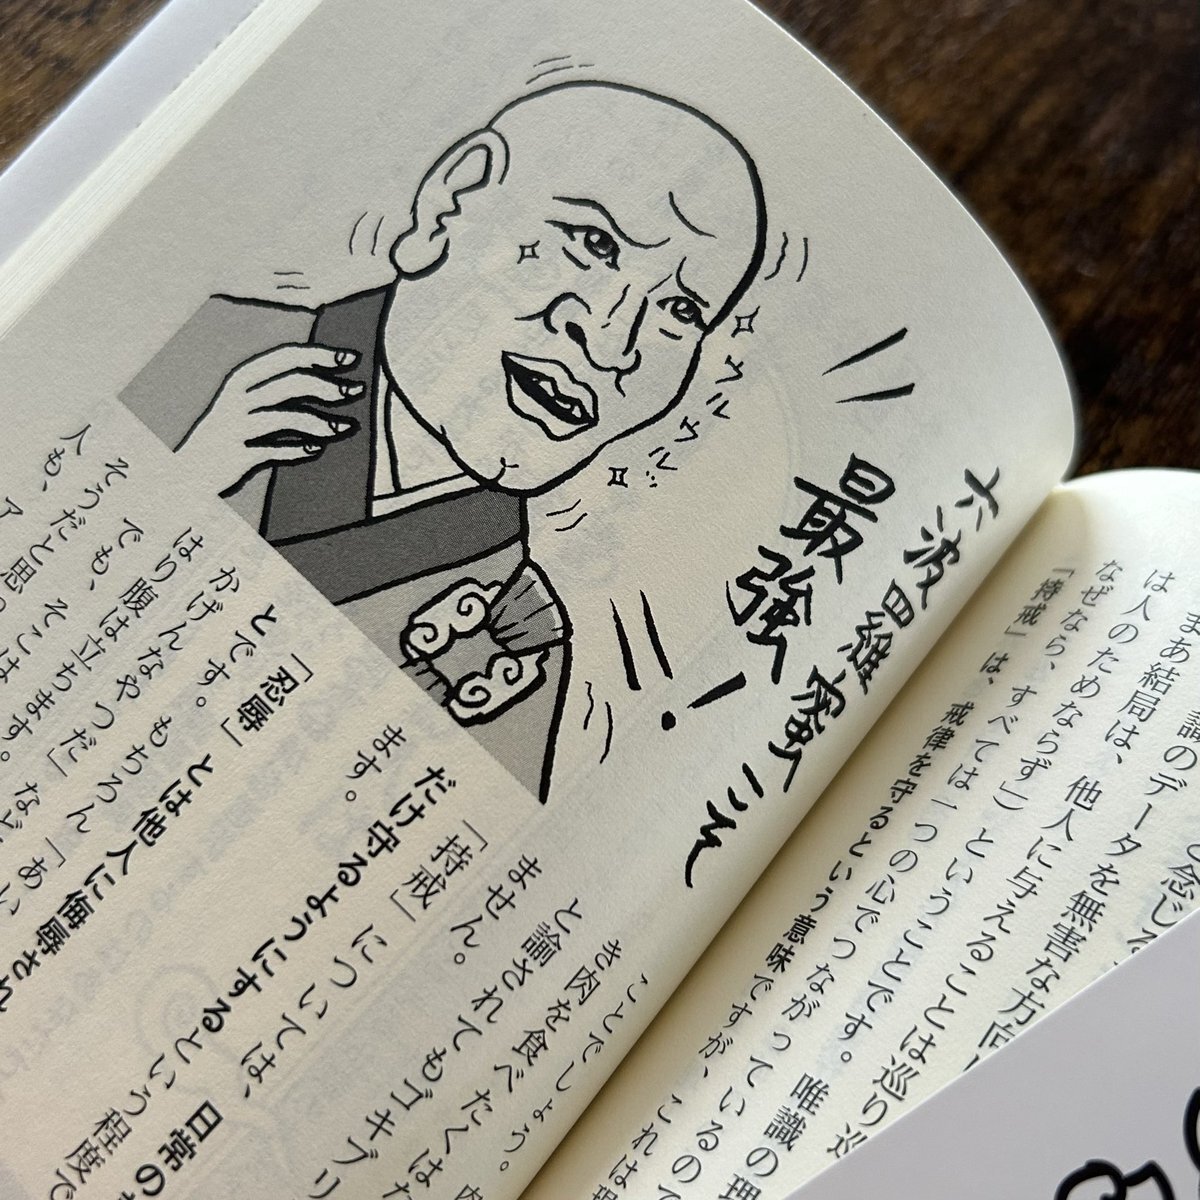 識のデータを無害な方向
まあ結局は、他人に与えることは巡り巡
は人のためならず」）ということです。唯識の理
なぜなら、すべては一つの心でつながっているので
「持戒」は、戒律を守るという意味ですが、これは現
六波羅蜜こそ
最強！
ウルウル…
ことでしょう。肉
き肉を食べたくはな
と諭されてもゴキブリ
ません。
「持戒」については、日常の
だけ守るようにするという程度で
ます。
「忍辱」とは他人に侮辱され
とです。もちろん「あい
かげんなやつだ」など
はり腹は立ちます。
でも、そこは
そうだと思っ
人も、ア